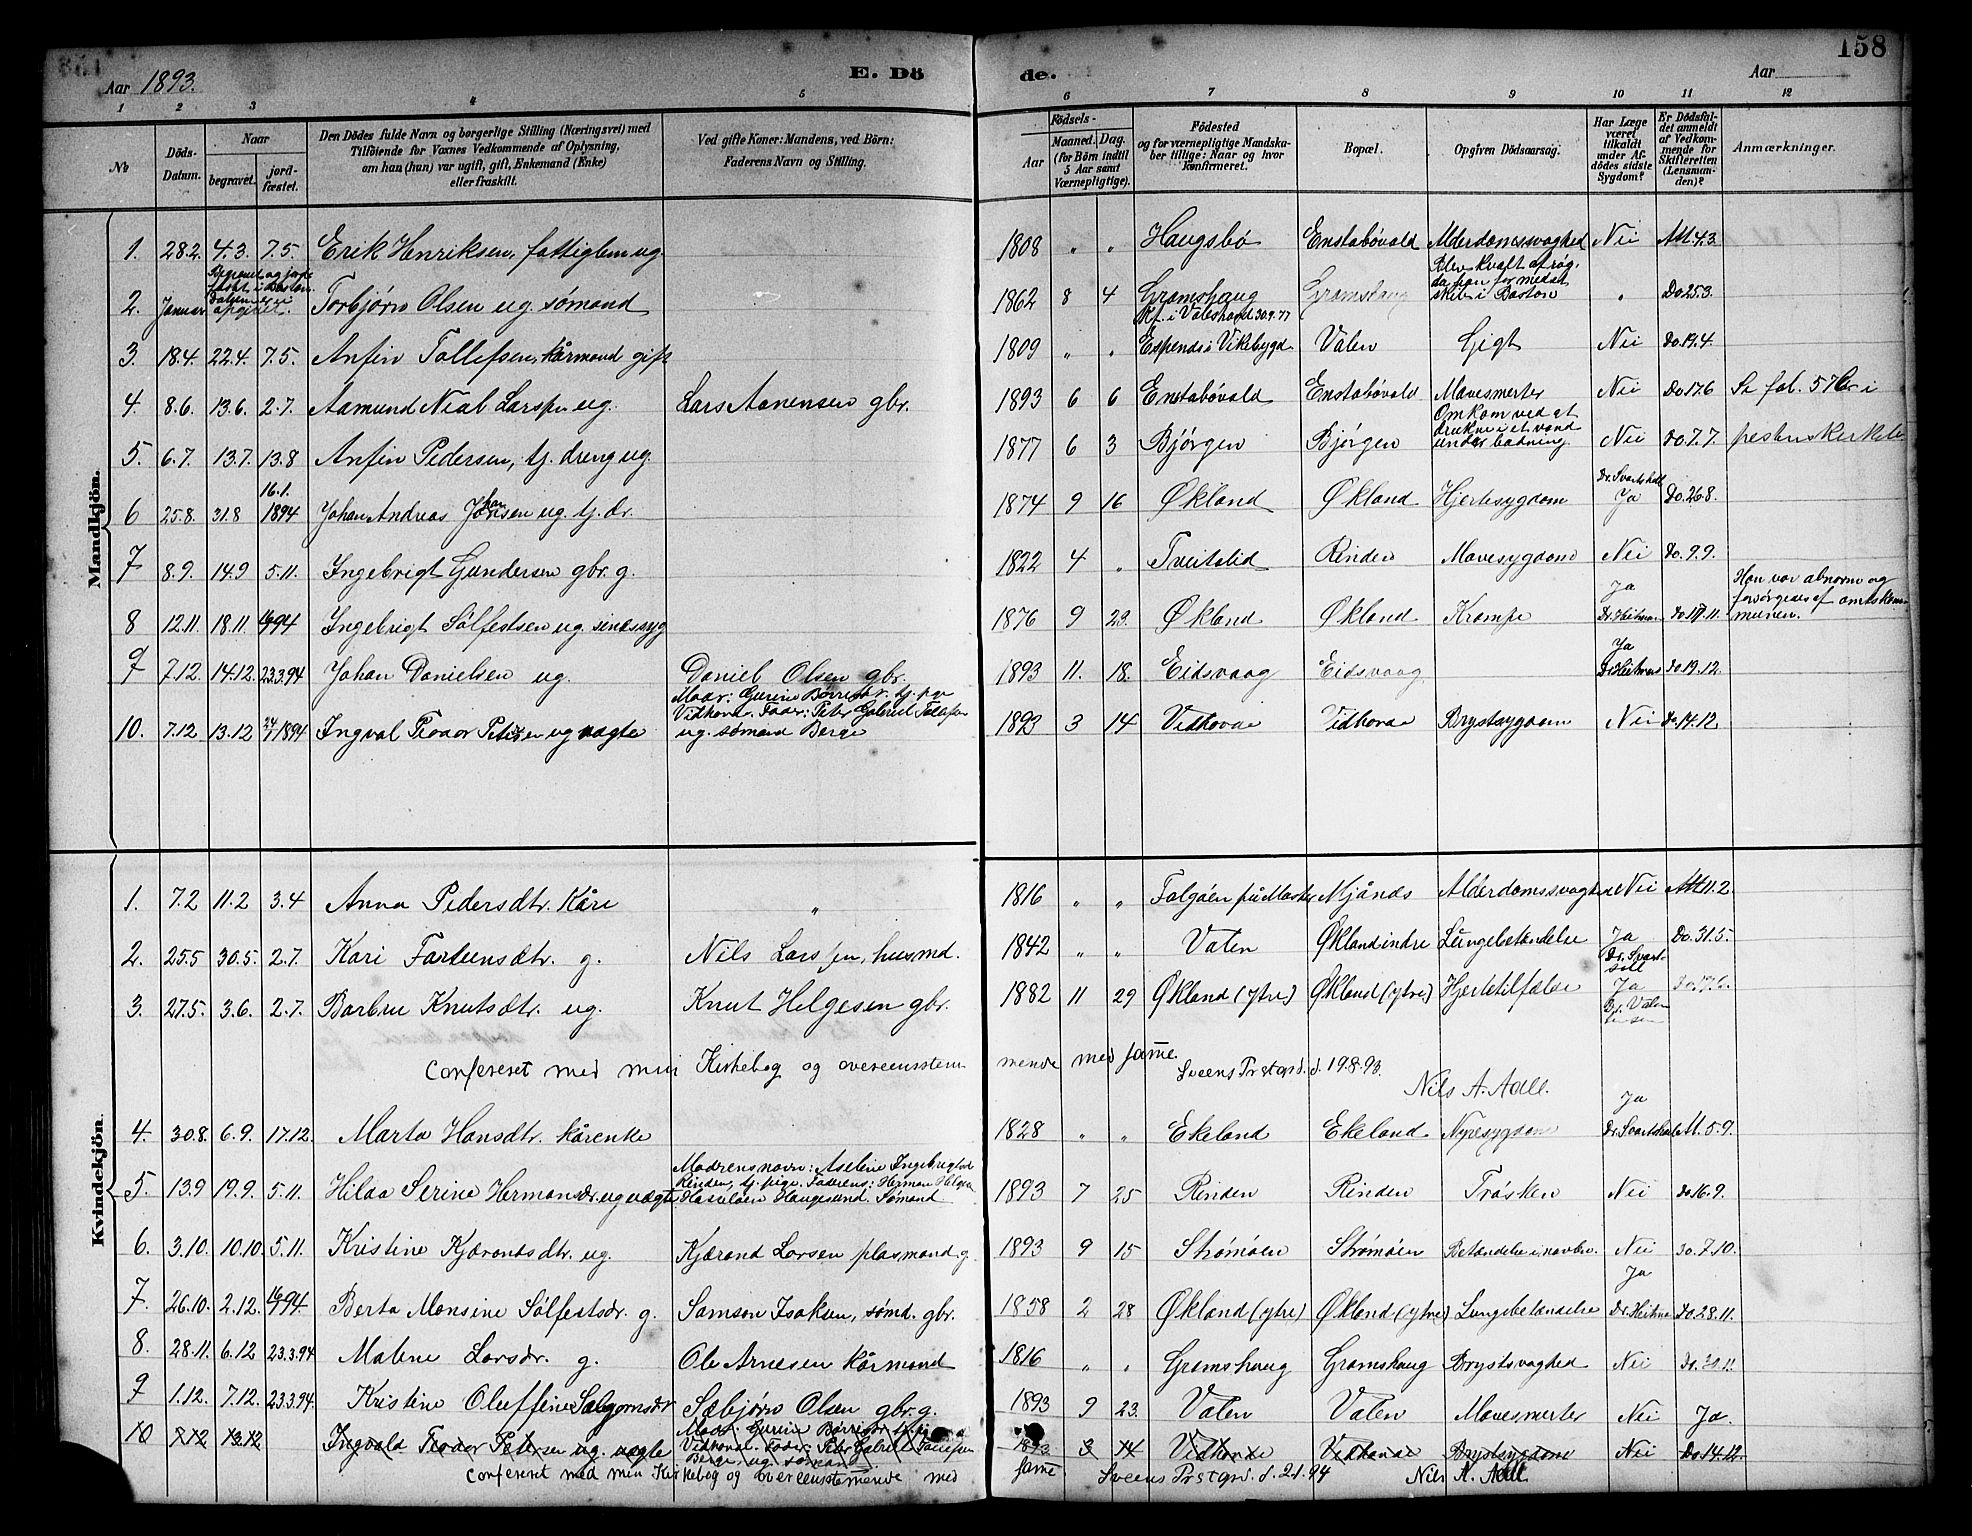 158
Aar 1893.
E. Dö
de.
Aar
1 2 3 4 5 6 7 8 9 10 11 12
№
Döds-Datum.
Naar
begravet.
jord-fæstet.
Den Dödes fulde Navn og borgerlige Stilling (Næringsvei) med
Tilföiende for Voxnes Vedkommende af Oplysning,
om han (hun) var ugift, gift, Enkemand (Enke)
eller fraskilt.
Ved gifte Koner: Mandens, ved Börn:
Faderens Navn og Stilling.
Födsels-
Aar
Maaned. Dag.
(for Börn indtil
5 Aar samt
Værnepligtige).
Födested
og for værnepligtige Mandska-
ber tillige: Naar og hvor
konfirmeret.
Bopæl.
Opgiven Dödsaarsag.
Har Læge
været
tilkaldt
under Af-
dödes sidste
Sygdom?
Er Dödsfal-
det anmeldt
af Vedkom-
mende for
Skifteretten
(Lensman-
den)?
Anmærkninger.
Mandkjön.
1. 28.2. 4.3. 7.5. Erik Henriksen, fattiglem ug. 1808 " " Haugsbø Enstabøvald Alderdomssvaghed Nei Att 4.3.
2. Januar Begravet og jordfæstet i Boston. Datum er ei opgivet. Torbjørn Olsen ug. sømand 1862 8 4 Gramshaug Kf. i Valestrand 30.9.77 Gramshaug Blev kvalt af røg, da han for med et skib i Boston " Do 25.3.
3. 18.4. 22.4. 7.5. Anfin Tollefsen, kårmand gift 1809 " " Espenes i Vikebygd Valen Gigt Nei Do. 19.4.
4. 8.6. 13.6. 2.7. Aamund Nial Larssen ug. Lars Aanensen gbr. 1893 6 6 Enstabøvald Enstabøvald Mavesmerter Nei Do 17.6 Se fol. 57
5. 6.7. 13.7. 13.8 Anfin Pedersen, tj. dreng ug. 1877 6 3 Bjørgen Bjørgen Omkom ved at drukne i et vand under badning. Nei Do. 7.7.
6 25.8. 31.8 16.1. 1894 Johan Andreas Johansen ug. tj. dr. 1874 9 16 Økland Økland Hjertesygdom Dr. Ja Do. 26.8.
7 8.9. 14.9 5.11. Ingebrigt Gundersen gbr. g. 1822 4 " Tveitalid Rinden Mavesygdom Nei Do. 9.9.
8 12.11. 18.11. 94 Ingebrigt Sølfestsen ug. sindssyg 1876 9 23. Økland Økland Krampe Ja Dr. Heitman Do 17.11. Han var abnorm og forsørgedes af amtskommunen.
9 7.12. 14.12. 23.3.94 Johan Danielsen ug. Daniel Olsen gbr. 1893 11. 18. Eidsvaag Eidsvaag Ja Dr. Heitman Do 19.12.
10. 7.12 13.12 1894 Ingval Teodor Petersen ug uægte Moder: Gurine Børresdr. tj. pge Vidhovde. Fader: Peter Gabriel Tollefsen ug. sømand Berge 1893 3 14 Vidhovde Vidhovde Brystsygdom Nei Do. 14.12.
Kvindekjön.
1. 7.2 11.2 3.4 Anna Pedersdtr. Kåre " 1816 " " Folgøen på Moster Mjånes Alderdomssvaghed Nei Att 11.2.
2. 25.5 30.5. 2.7. Kari Farteinsdtr. g. Nils Larssen, husmd. 1842 " " Valen Økland indre Lungebetændelse Ja Dr. Do. 31.5.
3. 27.5. 3.6. 2.7. Barbru Knutsdtr. ug. Knut Helgesen gbr. 1882 11 29 Økland (ytre) Økland (ytre) Hjertetilfælde Ja Dr. Valentinsen
Confereret med min Kirkebog og overensstem mende med samme.
Sveens Prstgrd. d. 19.8.93.
Nils A. Aall.
4. 30.8. 6.9. 17.12. Marta Hansdtr. kårenke 1828 " " Ekeland Ekeland Nyresygdom Ja Dr. At. 5.9.
5. 13.9 19.9. 5.11. Hilda Serine Hermansdr. ug uægte Modrens navn: Aseline Ingebrigtsd Rinden, tj. pige. Faderens: Herman Helgesen Hasseløen Haugesund. Sømand 1893 7 25 Rinden Rinden Trøsken Nei Do 16.9.
6. 3.10. 10.10. 5.11. Kristine Kjærandsdtr. ug. Kjærand Larsen plasmand g. 1893 9 15 Strømøen Strømøen Betændelse i navlen. Nei Do. 7.10.
7. 26.10. 2.12. 94. Berta Monsine Sølfestsdr. g. Samson Isaksen, sømd. gbr. 1858 2 28 Økland (ytre) Økland (ytre) Lungebetændelse Ja Dr. Heitman Do. 28.11.
8. 28.11. 6.12 23.3.94 Malene Larsdr. g. Ole Arnesen kårmand 1816 " " Gramshaug Gramshaug Brystsvaghed Nei Do. 30.11.
9 1.12. 7.12. 23.3.94. Kristine Oluffine Sæbjørnsdr Sæbjørn Olsen gbr. g. 1893 9 23. Valen Valen Mavesmerter Nei Ja.
10 7.12 13.12 Ingvald Teodor Petersen ug. uægte Moder: Gurine Børresdtr. tj. pige Vidhovde. Fader: Peter Gabriel Tollefsen Berge, ug. sømand 1893 3 14 Vidhovde Vidhovde Brystsygdom Nei Do 14.12.
Confereret med min Kirkebog og overensstemmende med samme.
Sveens Prstgrd. d. 2.1.94
Nils A. Aall